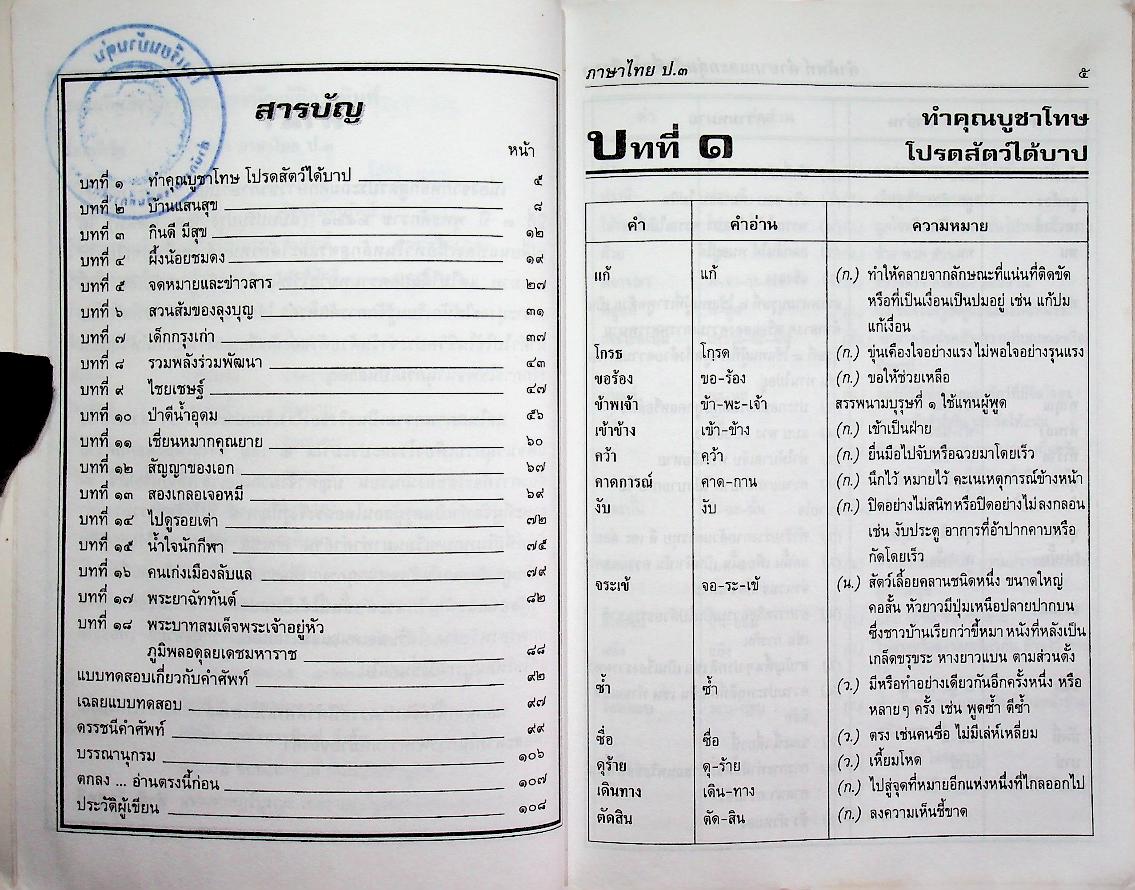 สารบัญ
หน้า
บทที่ ๑ ทำคุณบูชาโทษ โปรดสัตว์ได้บาป ๕
บทที่ ๒ บ้านแสนสุข ๘
บทที่ ๓ กินดี มีสุข ๑๒
บทที่ ๔ ผึ้งน้อยชมดง ๑๙
บทที่ ๕ จดหมายและข่าวสาร ๒๗
บทที่ ๖ สวนส้มของลุงบุญ ๓๑
บทที่ ๗ เด็กกรุงเก่า ๓๗
บทที่ ๘ รวมพลังร่วมพัฒนา ๔๓
บทที่ ๙ ไชยเชษฐ์ ๔๗
บทที่ ๑๐ ป่าดีน้ำอุดม ๕๖
บทที่ ๑๑ เชี่ยนหมากคุณยาย ๖๐
บทที่ ๑๒ สัญญาของเอก ๖๗
บทที่ ๑๓ สองเกลอเจอหมี ๖๙
บทที่ ๑๔ ไปดูรอยเต่า ๗๒
บทที่ ๑๕ น้ำใจนักกีฬา ๗๕
บทที่ ๑๖ คนเก่งเมืองลับแล ๗๙
บทที่ ๑๗ พระยาฉัททันต์ ๘๒
บทที่ ๑๘ พระบาทสมเด็จพระเจ้าอยู่หัว
ภูมิพลอดุลยเดชมหาราช ๘๘
แบบทดสอบเกี่ยวกับคำศัพท์ ๙๒
เฉลยแบบทดสอบ ๙๗
ดรรชนีคำศัพท์ ๙๙
บรรณานุกรม ๑๐๖
ตกลง ... อ่านตรงนี้ก่อน ๑๐๗
ประวัติผู้เขียน ๑๐๘
ภาษาไทย ป.๓ ๕
บทที่ ๑
ทำคุณบูชาโทษ
โปรดสัตว์ได้บาป
คำ คำอ่าน ความหมาย
แก้ แก้ (ก.) ทำให้คลายจากลักษณะที่แน่นที่ติดขัด
หรือที่เป็นเงื่อนเป็นปมอยู่ เช่น แก้ปม
แก้เงื่อน
โกรธ โกฺรด (ก.) ขุ่นเคืองใจอย่างแรง ไม่พอใจอย่างรุนแรง
ขอร้อง ขอ-ร้อง (ก.) ขอให้ช่วยเหลือ
ข้าพเจ้า ข้า-พะ-เจ้า สรรพนามบุรุษที่ ๑ ใช้แทนผู้พูด
เข้าข้าง เข้า-ข้าง (ก.) เข้าเป็นฝ่าย
คว้า คฺว้า (ก.) ยื่นมือไปจับหรือฉวยมาโดยเร็ว
คาดการณ์ คาด-กาน (ก.) นึกไว้ หมายไว้ คะเนเหตุการณ์ข้างหน้า
งับ งับ (ก.) ปิดอย่างไม่สนิทหรือปิดอย่างไม่ลงกลอน
เช่น งับประตู อาการที่อ้าปากคาบหรือ
กัดโดยเร็ว
จระเข้ จอ-ระ-เข้ (น.) สัตว์เลื้อยคลานชนิดหนึ่ง ขนาดใหญ่
คอสั้น หัวยาวมีปุ่มเหนือปลายปากบน
ซึ่งชาวบ้านเรียกว่าขี้หมา หนังที่หลังเป็น
เกล็ดขรุขระ หางยาวแบน ตามส่วนตั้ง
ซ้ำ ซ้ำ (ว.) มีหรือทำอย่างเดียวกันอีกครั้งหนึ่ง หรือ
หลายๆ ครั้ง เช่น พูดซ้ำ ตีซ้ำ
ซื่อ ซื่อ (ว.) ตรง เช่นคนซื่อ ไม่มีเล่ห์เหลี่ยม
ดุร้าย ดุ-ร้าย (ว.) เหี้ยมโหด
เดินทาง เดิน-ทาง (ก.) ไปสู่จุดที่หมายอีกแห่งหนึ่งที่ไกลออกไป
ตัดสิน ตัด-สิน (ก.) ลงความเห็นชี้ขาด